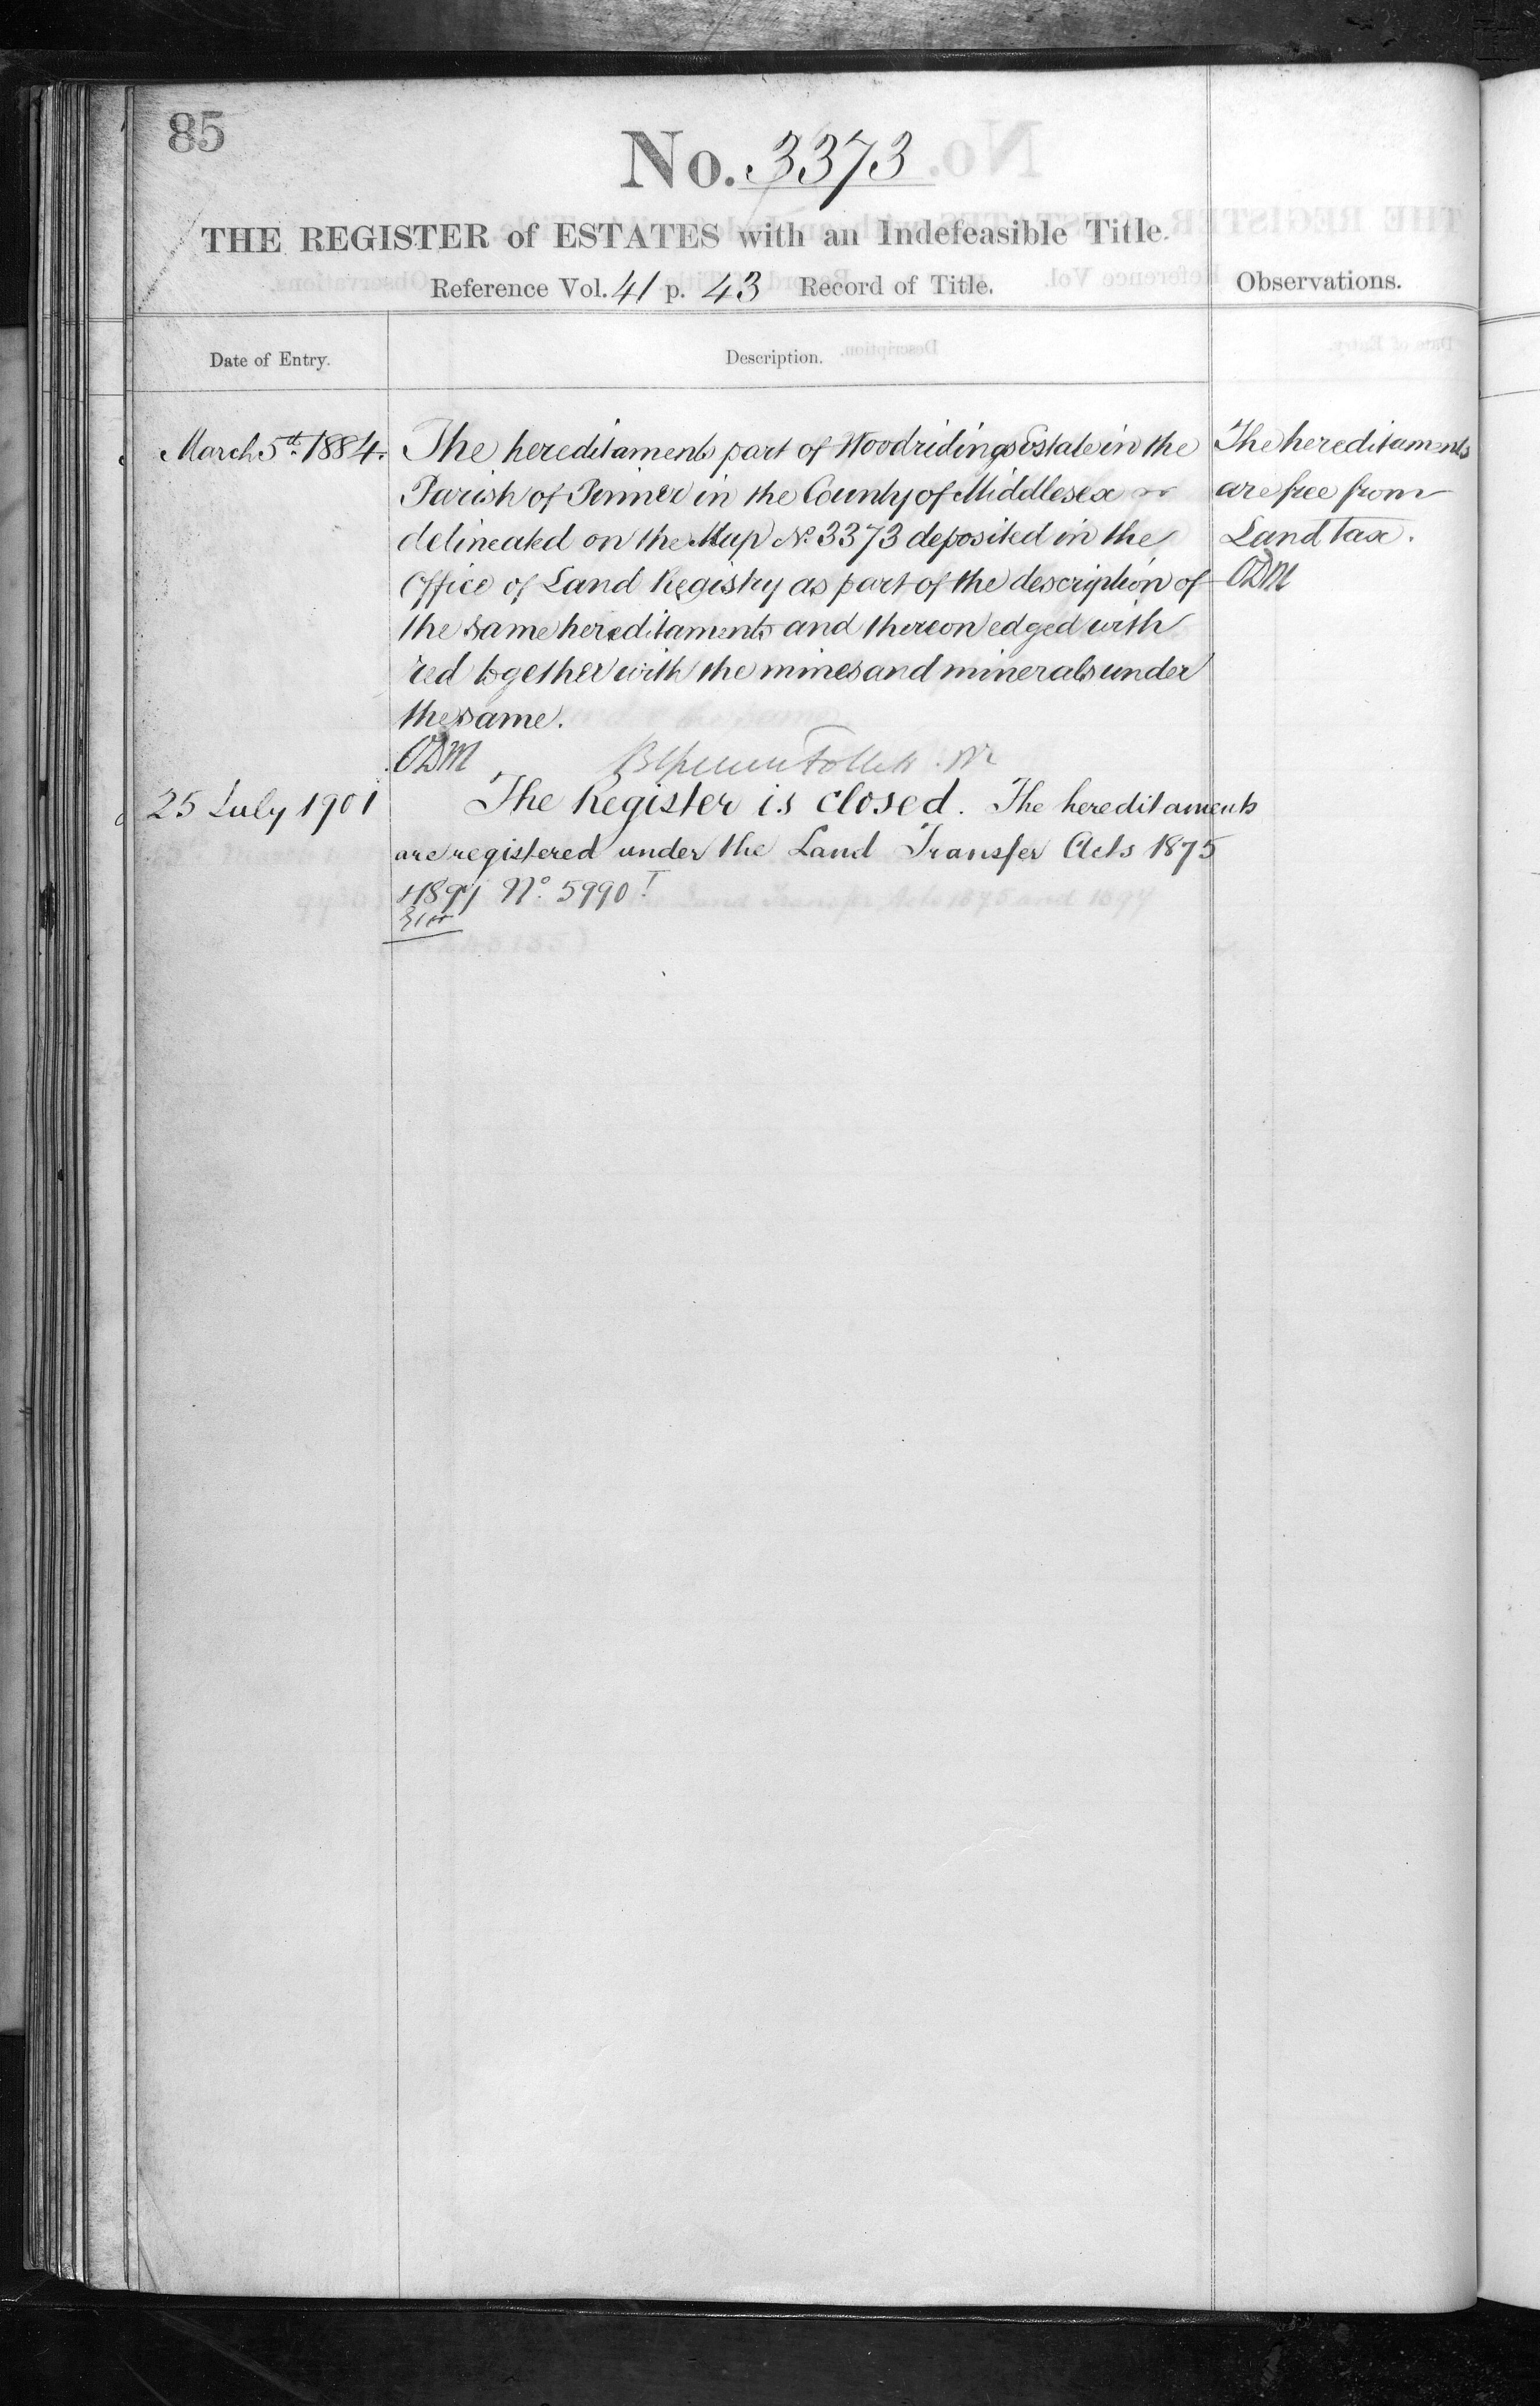 85
No. 3373
THE REGISTER of ESTATES with an Indefeasible Title.
Reference Vol. 41 p. 43 Record of Title.
Observations.
Date of Entry.
Description.
March 5th 1884.
The hereditaments part of Woodridings Estate in the
Parish of Pinner in the County of Middlesex
delineated on the Map No. 3373 deposited in the
Office of Land Registry as part of the description of
the same hereditaments and thereon edged with
red together with the mines and minerals under
the same.
ODM
Follett
The hereditaments
are free from
Land Tax.
ODM
25 July 1901
The Register is closed. The hereditaments
are registered under the Land Transfer Acts 1875
+ 1897 No. 5990